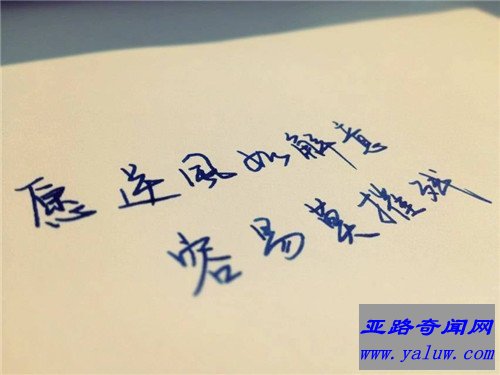 愿逆風如解意
容易莫摧残
亚路奇闻网
www.yaluw.com